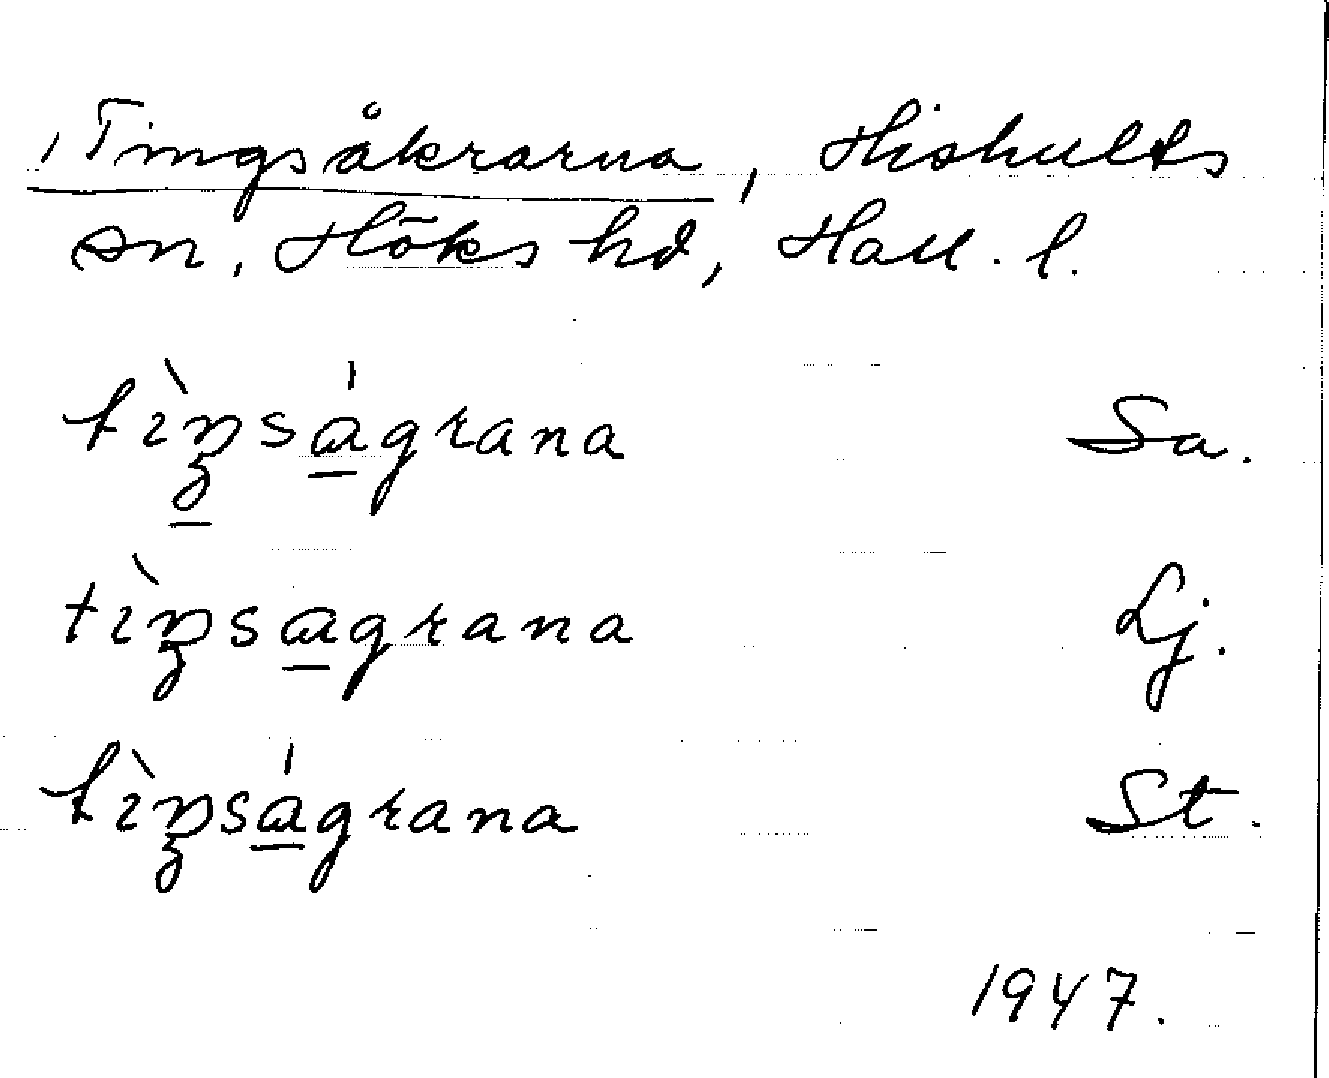 Tingsåkrarna, Hishults
sn, Höks hd, Hall. l.
tìŋságrana Sa.
tìŋsagrana Lj.
tìŋságrana St.
1947.